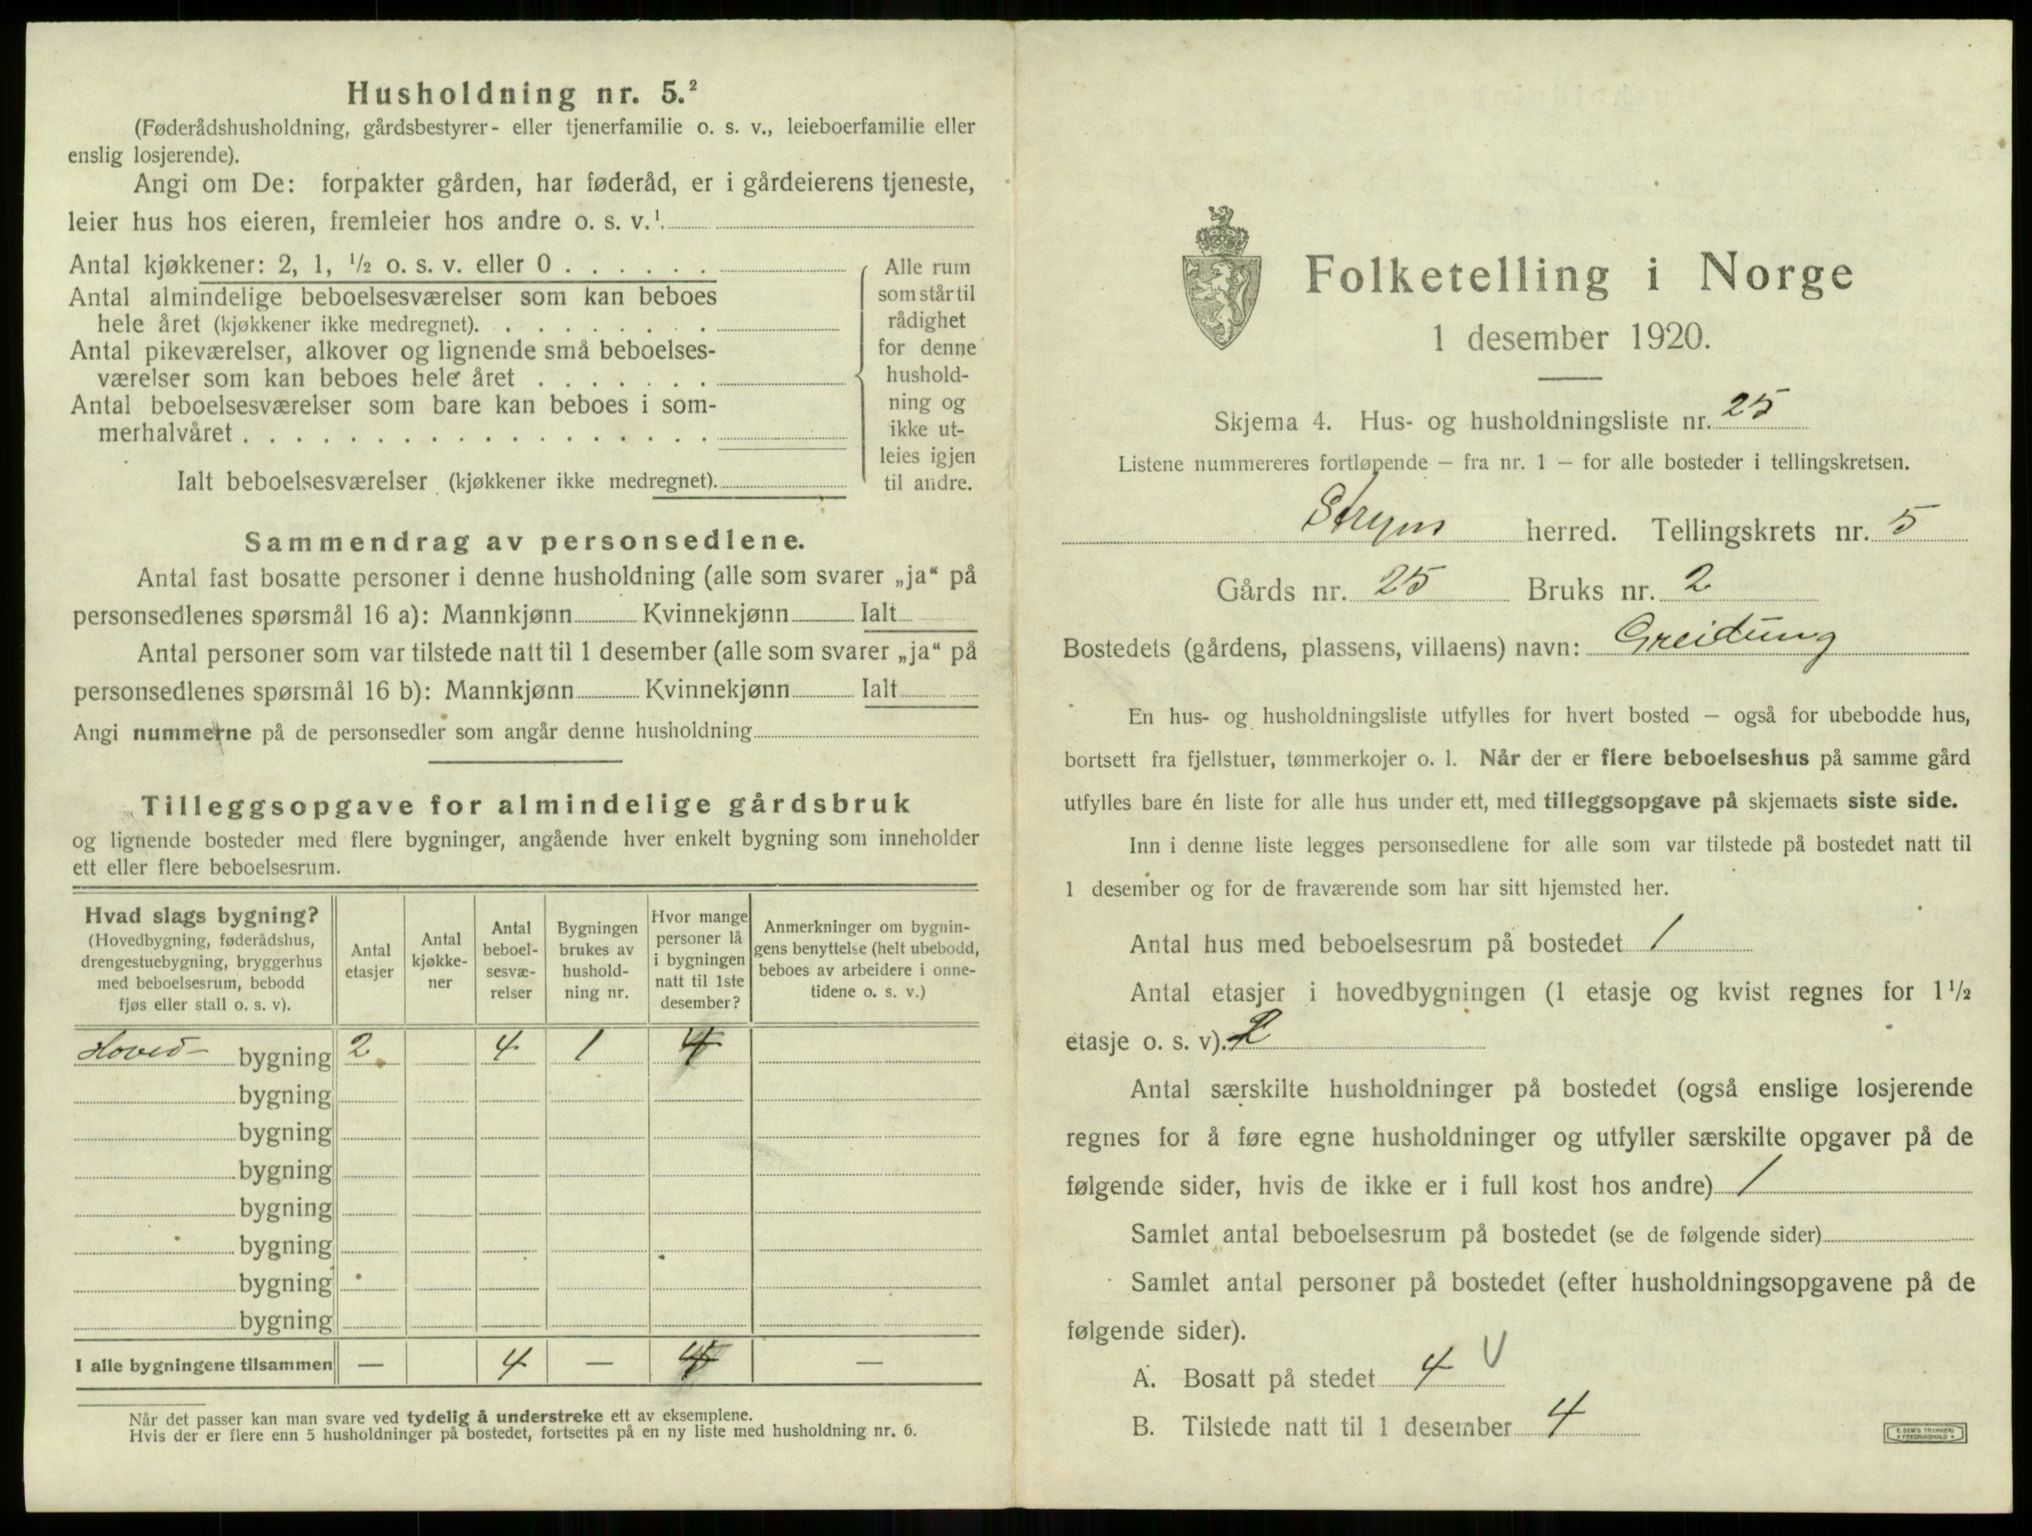 Husholdning nr. 5.²
(Føderådshusholdning, gårdsbestyrer- eller tjenerfamilie o. s. v., leieboerfamilie eller
enslig losjerende).
Angi om De: forpakter gården, har føderåd, er i gårdeierens tjeneste,
leier hus hos eieren, fremleier hos andre o. s. v.¹
Antal kjøkkener: 2, 1, ½ o. s. v. eller 0 . . . . . .
Antal almindelige beboelsesværelser som kan beboes
hele året (kjøkkener ikke medregnet). . . . . . . . .
Antal pikeværelser, alkover og lignende små beboelses-
værelser som kan beboes hele året . . . . . . .
Antal beboelsesværelser som bare kan beboes i som-
merhalvåret . . . . . . . . . . . . . . . . . .
Ialt beboelsesværelser (kjøkkener ikke medregnet).
Alle rum
som står til
rådighet
for denne
hushold-
ning og
ikke ut-
leies igjen
til andre.
Sammendrag av personsedlene.
Antal fast bosatte personer i denne husholdning (alle som svarer „ja“ på
personsedlenes spørsmål 16 a): Mannkjønn Kvinnekjønn Ialt
Antal personer som var tilstede natt til 1 desember (alle som svarer „ja“ på
personsedlenes spørsmål 16 b): Mannkjønn Kvinnekjønn Ialt
Angi nummerne på de personsedler som angår denne husholdning
Tilleggsopgave for almindelige gårdsbruk
og lignende bosteder med flere bygninger, angående hver enkelt bygning som inneholder
ett eller flere beboelsesrum.
Hvad slags bygning?
(Hovedbygning, føderådshus,
drengestuebygning, bryggerhus
med beboelsesrum, bebodd
fjøs eller stall o. s. v).
Antal
etasjer
Antal
kjøkke-
ner
Antal
beboel-
sesvæ-
relser
Bygningen
brukes av
hushold-
ning nr.
Hvor mange
personer lå
i bygningen
natt til 1ste
desember?
Anmerkninger om bygnin-
gens benyttelse (helt ubebodd,
beboes av arbeidere i onne-
tidene o. s. v.)
Hoved- bygning 2 4 1 4
bygning
bygning
bygning
bygning
bygning
bygning
bygning
I alle bygningene tilsammen — 4 — 4 —
Når det passer kan man svare ved tydelig å understreke ett av eksemplene.
Hvis der er flere enn 5 husholdninger på bostedet, fortsettes på en ny liste med husholdning nr. 6.
Folketelling i Norge
1 desember 1920.
Skjema 4. Hus- og husholdningsliste nr. 25
Listene nummereres fortløpende — fra nr. 1 — for alle bosteder i tellingskretsen.
Stryns herred. Tellingskrets nr. 5
Gårds nr. 25 Bruks nr. 2
Bostedets (gårdens, plassens, villaens) navn: Greidung
En hus- og husholdningsliste utfylles for hvert bosted — også for ubebodde hus,
bortsett fra fjellstuer, tømmerkojer o. l. Når der er flere beboelseshus på samme gård
utfylles bare én liste for alle hus under ett, med tilleggsopgave på skjemaets siste side.
Inn i denne liste legges personsedlene for alle som var tilstede på bostedet natt til
1 desember og for de fraværende som har sitt hjemsted her.
Antal hus med beboelsesrum på bostedet 1
Antal etasjer i hovedbygningen (1 etasje og kvist regnes for 1½
etasje o. s. v). 2
Antal særskilte husholdninger på bostedet (også enslige losjerende
regnes for å føre egne husholdninger og utfyller særskilte opgaver på de
følgende sider, hvis de ikke er i full kost hos andre) 1
Samlet antal beboelsesrum på bostedet (se de følgende sider)
Samlet antal personer på bostedet (efter husholdningsopgavene på de
følgende sider).
A. Bosatt på stedet 4 V
B. Tilstede natt til 1 desember 4
E. SEM'S TRYKKERI
FREDRIKSHALD